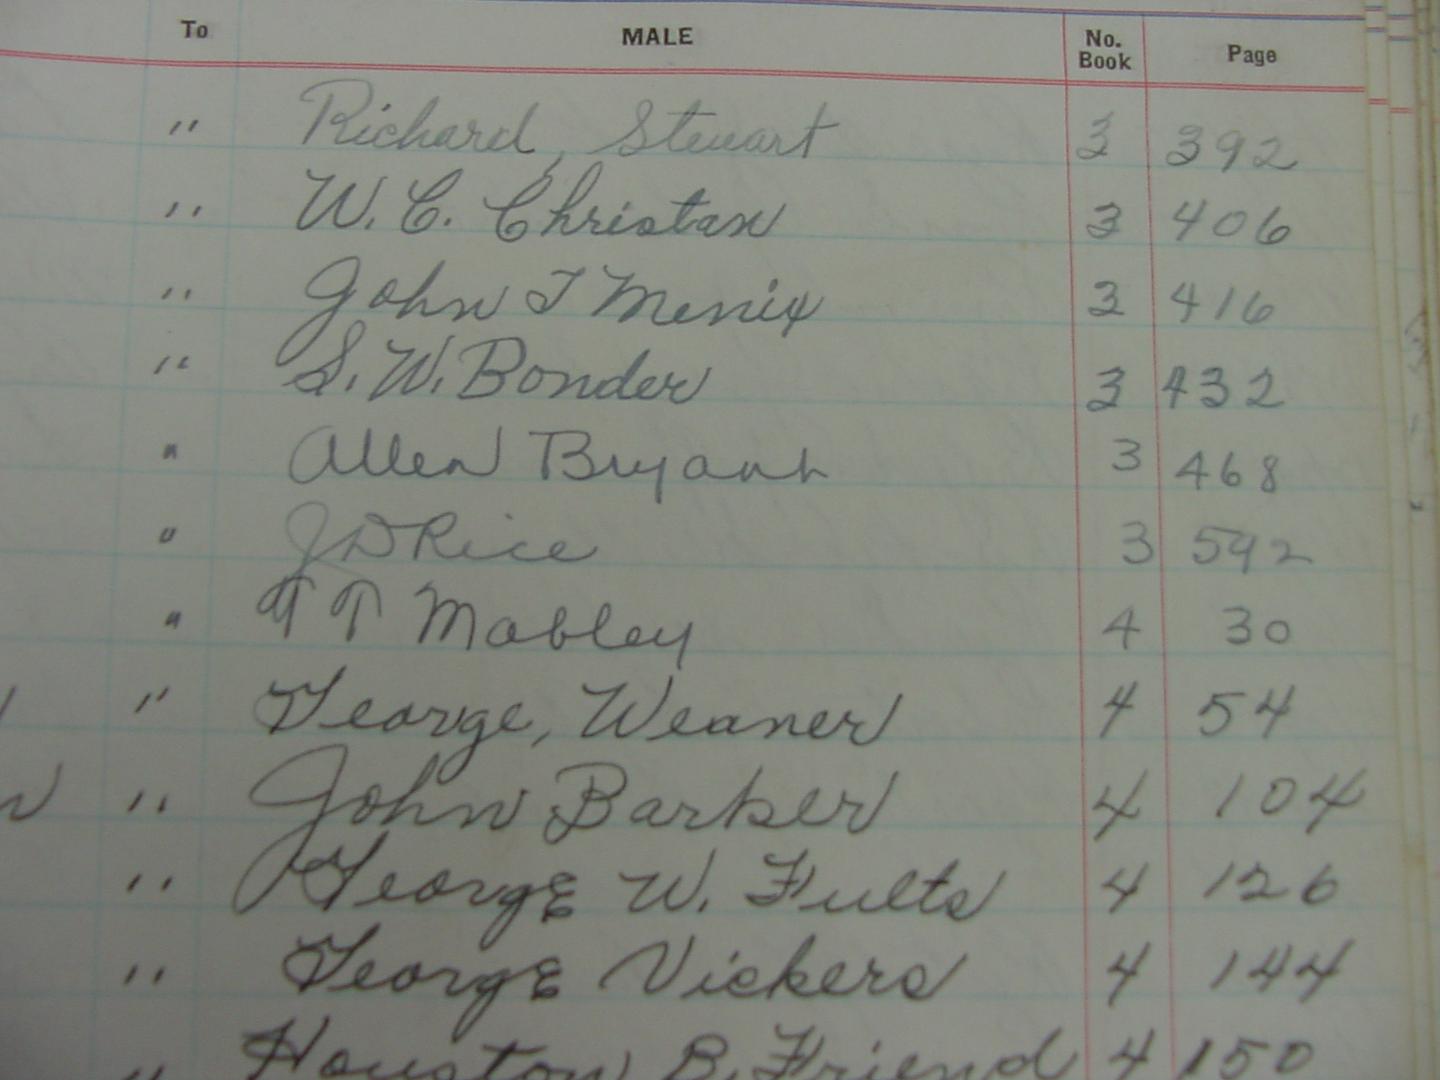 To MALE No. Book Page
" Richard, Stewart 3 392
" W. C. Christan 3 406
" John T Menix 3 416
" S. W. Bonder 3 432
" Allen Bryant 3 468
" J D Rice 3 592
" T T Mobley 4 30
" George, Weaner 4 54
" John Barker 4 104
" George W. Fults 4 126
" George Vickers 4 144
" Houston B. Friend 4 150